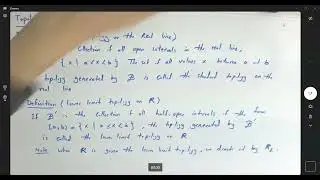 Topol
(topology on the Real line)
collection of all open intervals in the real line,
{x | a<x<b} The set of all values x between a and b
topology generated by B is called the standard topology on the
real line
Definition (lower limit topology on R)
If B' is the collection of all half-open intervals of the form
[a,b) = {x | a≤x<b}, the topology generated by B'
is called the lower limit topology on R
Note when R is given the lower limit topology, we denote it by Rℓ.